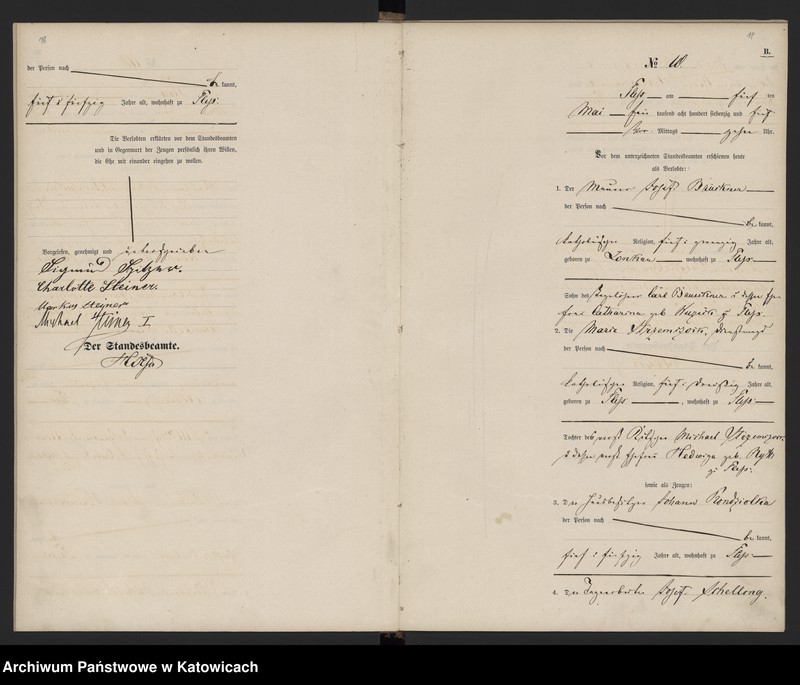 18
der Person nach
be kannt,
fünf u fünfzig Jahre alt, wohnhaft zu Pless
Die Verlobten erklärten vor dem Standesbeamten
und in Gegenwart der Zeugen persönlich ihren Willen,
die Ehe mit einander eingehen zu wollen.
Vorgelesen, genehmigt und unterschrieben
Sigmund Spitzer.
Charlotte Steiner.
Markus Steiner
Michael Steiner I
Der Standesbeamte.
B.
№ 10.
Pless am fünf ten
Mai ein tausend acht hundert siebenzig und fünf
Vor Mittags zehn Uhr.
Vor dem unterzeichneten Standesbeamten erschienen heute
als Verlobte:
1. Der Maurer Josef
der Person nach
be kannt,
katholischer Religion, fünf u zwanzig Jahre alt,
geboren zu wohnhaft zu Pless
Sohn des Carl u dessen Ehe
frau Catharina geb zu Pless.
2. Die Marie
der Person nach
be kannt,
katholischer Religion, fünf u dreißig Jahre alt,
geboren zu Pless, wohnhaft zu Pless
Tochter des Michael
u dessen Ehefrau Hedwiga geb.
zu Pless.
sowie als Zeugen:
3. Der Hausbesitzer Johann
der Person nach
be kannt,
fünf u fünfzig Jahre alt, wohnhaft zu Pless
4. Der Josef Schellong.
Archiwum Państwowe w Katowicach